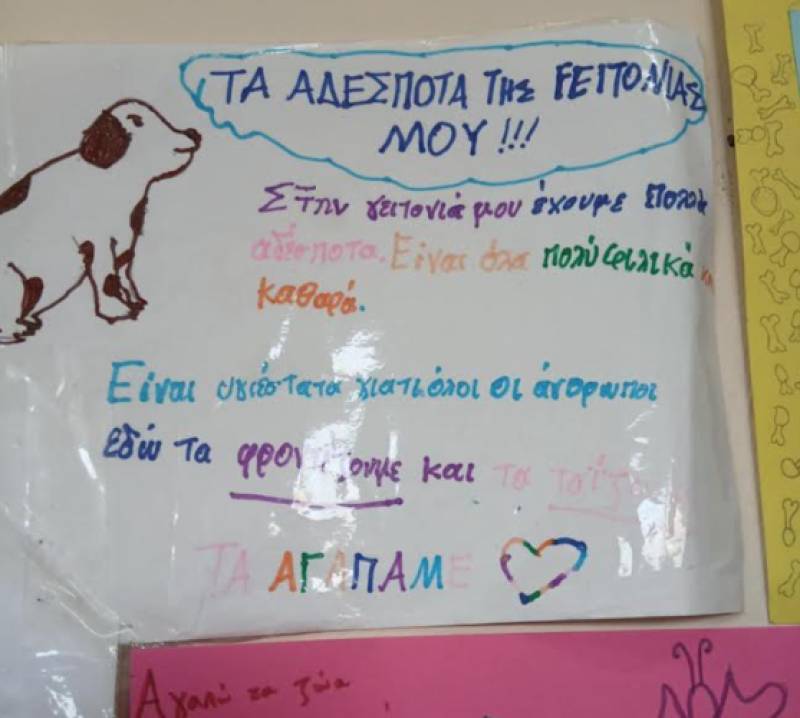 ΤΑ ΑΔΕΣΠΟΤΑ ΤΗΣ ΓΕΙΤΟΝΙΑΣ
ΜΟΥ!!!
Στην γειτονιά μου έχουμε πολλά
αδέσποτα. Είναι όλα πολύ φιλικά και
καθαρά.
Είναι υγιέστατα γιατί όλοι οι άνθρωποι
εδώ τα φροντίζουμε και τα
ΤΑ ΑΓΑΠΑΜΕ
Αγαπώ τα ζώα